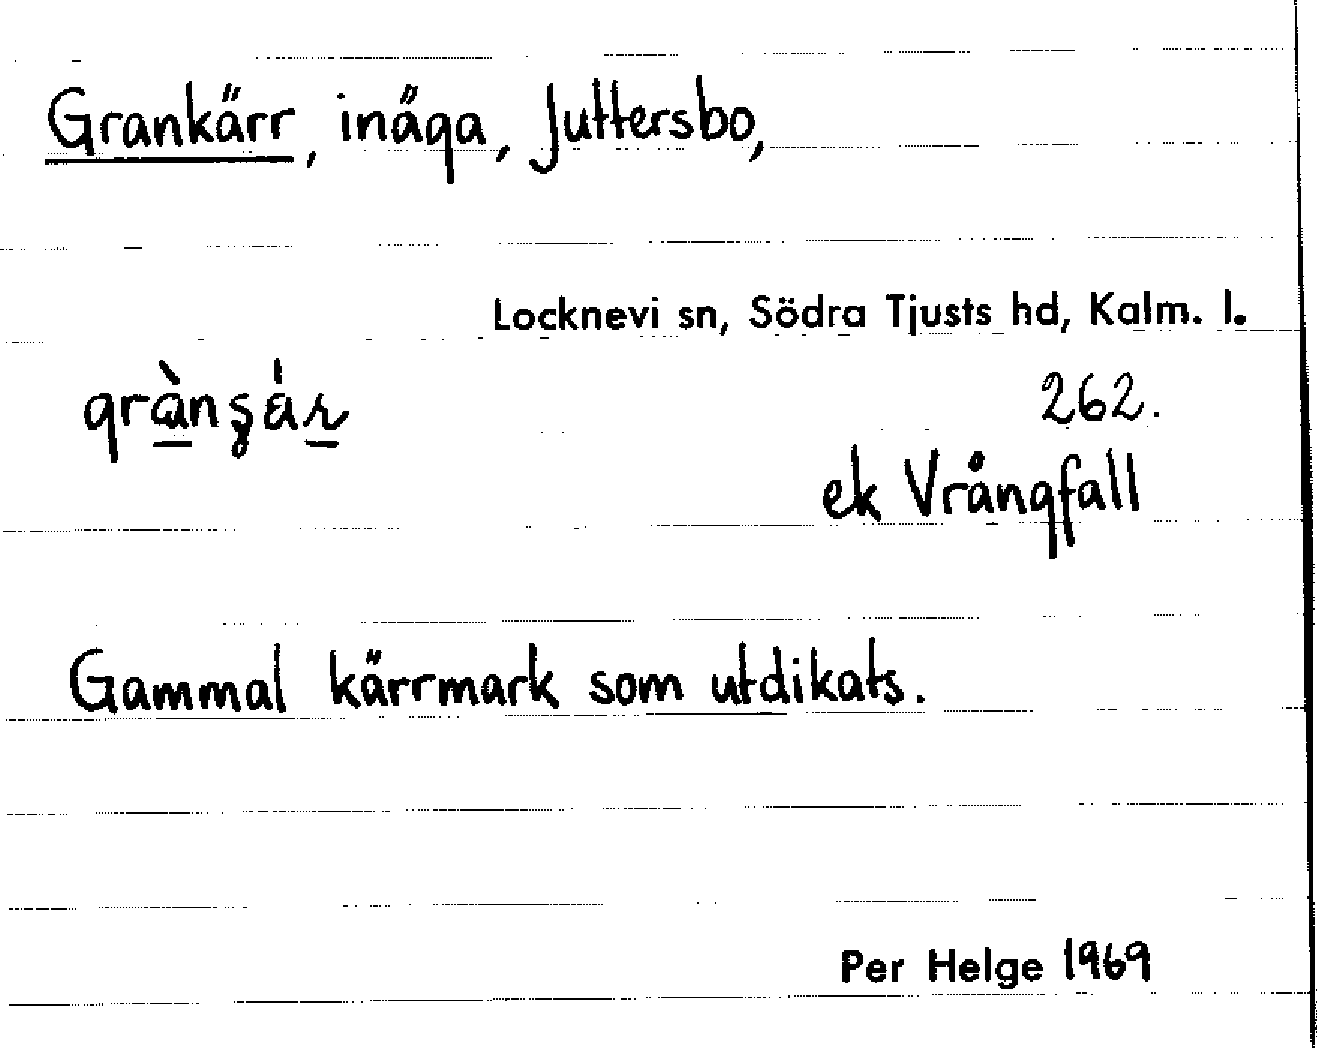 Grankärr, inäga, Juttersbo,
Locknevi sn, Södra Tjusts hd, Kalm. l.
262.
ek Vrångfall
Gammal kärrmark som utdikats.
Per Helge 1969